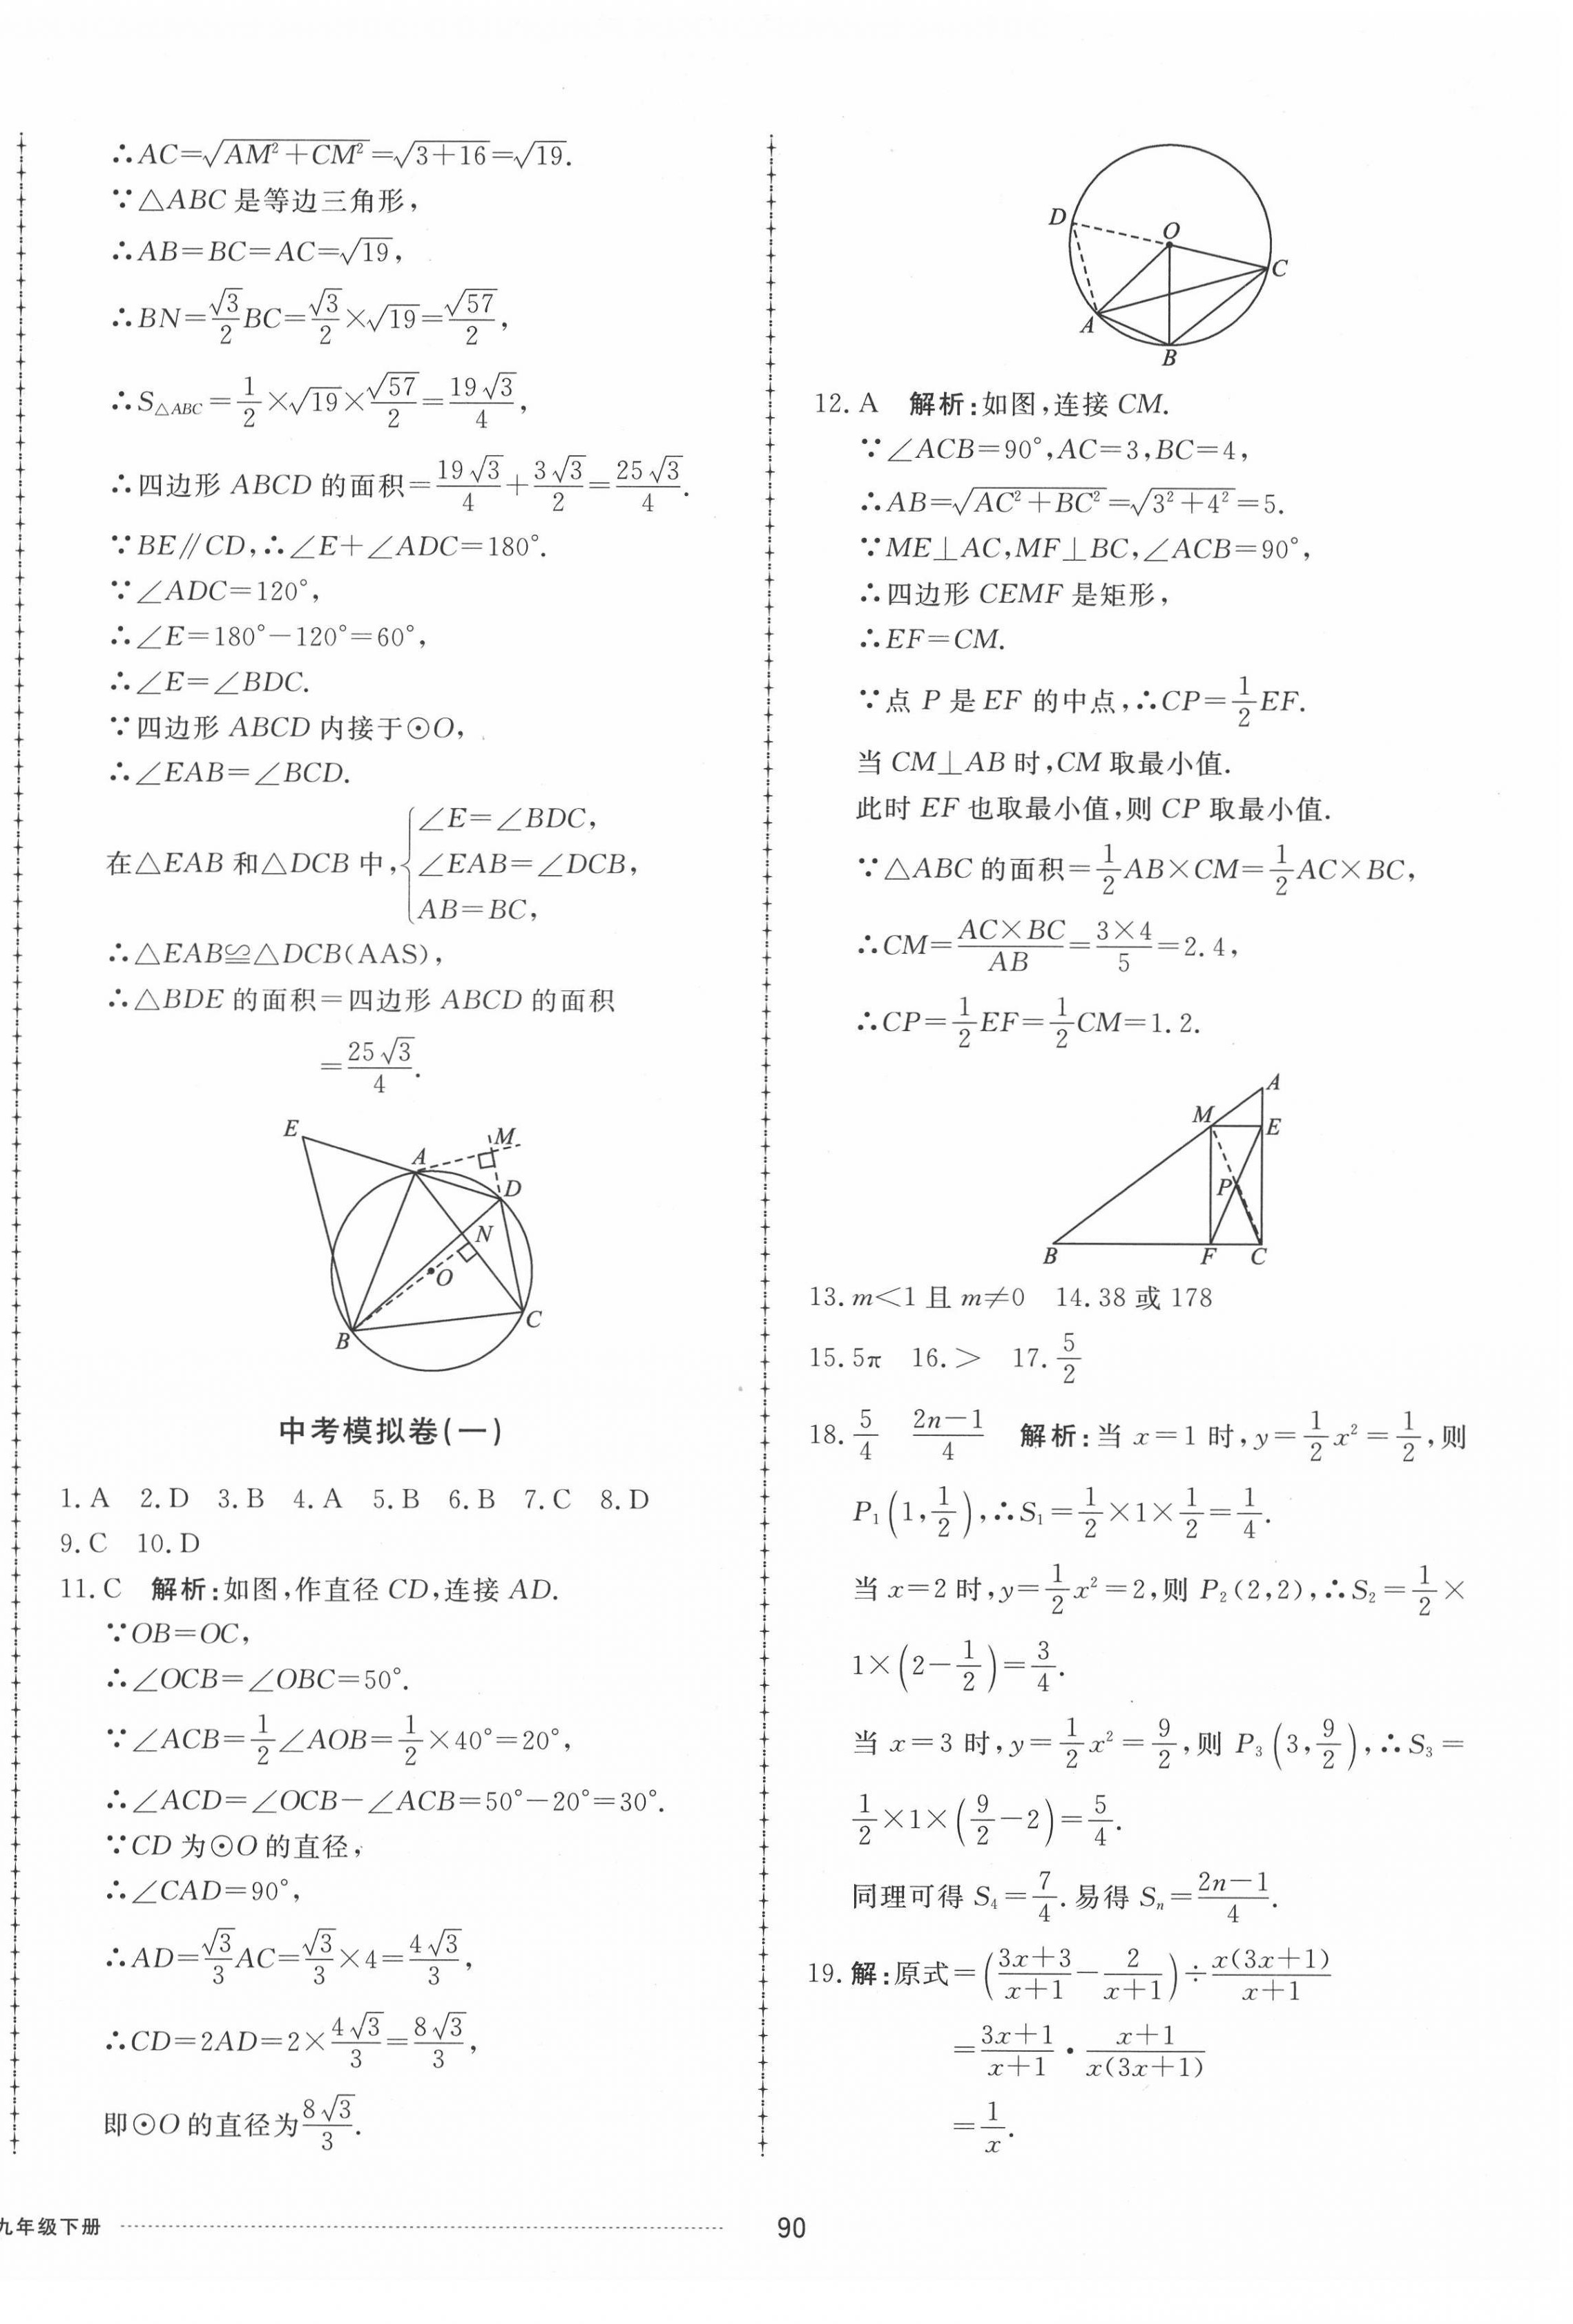 ∴AC=√(AM²+CM²)=√(3+16)=√19.
∵△ABC 是等边三角形,
∴AB=BC=AC=√19,
∴BN=√3/2 BC=√3/2×√19=√57/2,
∴S△ABC=1/2×√19×√57/2=19√3/4,
∴四边形 ABCD 的面积=19√3/4+3√3/2=25√3/4.
∵BE∥CD,∴∠E+∠ADC=180°.
∵∠ADC=120°,
∴∠E=180°-120°=60°,
∴∠E=∠BDC.
∵四边形 ABCD 内接于⊙O,
∴∠EAB=∠BCD.
在△EAB 和△DCB 中,{∠E=∠BDC,
∠EAB=∠DCB,
AB=BC,
∴△EAB≌△DCB(AAS),
∴△BDE 的面积=四边形 ABCD 的面积
=25√3/4.
E
A
M
D
N
O
C
B
中考模拟卷(一)
1.A 2.D 3.B 4.A 5.B 6.B 7.C 8.D
9.C 10.D
11.C 解析:如图,作直径 CD,连接 AD.
∵OB=OC,
∴∠OCB=∠OBC=50°.
∵∠ACB=1/2∠AOB=1/2×40°=20°,
∴∠ACD=∠OCB-∠ACB=50°-20°=30°.
∵CD 为⊙O 的直径,
∴∠CAD=90°,
∴AD=√3/3 AC=√3/3×4=4√3/3,
∴CD=2AD=2×4√3/3=8√3/3,
即⊙O 的直径为8√3/3.
D
O
C
A
B
12.A 解析:如图,连接 CM.
∵∠ACB=90°,AC=3,BC=4,
∴AB=√(AC²+BC²)=√(3²+4²)=5.
∵ME⊥AC,MF⊥BC,∠ACB=90°,
∴四边形 CEMF 是矩形,
∴EF=CM.
∵点 P 是 EF 的中点,∴CP=1/2EF.
当 CM⊥AB 时,CM 取最小值.
此时 EF 也取最小值,则 CP 取最小值.
∵△ABC 的面积=1/2AB×CM=1/2AC×BC,
∴CM=(AC×BC)/AB=(3×4)/5=2.4,
∴CP=1/2EF=1/2CM=1.2.
A
M
E
P
B
F
C
13.m<1 且 m≠0 14.38 或 178
15.5π 16.> 17.5/2
18.5/4 (2n-1)/4 解析:当 x=1 时,y=1/2x²=1/2,则
P₁(1,1/2),∴S₁=1/2×1×1/2=1/4.
当 x=2 时,y=1/2x²=2,则 P₂(2,2),∴S₂=1/2×
1×(2-1/2)=3/4.
当 x=3 时,y=1/2x²=9/2,则 P₃(3,9/2),∴S₃=
1/2×1×(9/2-2)=5/4.
同理可得 S₄=7/4.易得 Sₙ=(2n-1)/4.
19.解:原式=((3x+3)/(x+1)-2/(x+1))÷x(3x+1)/(x+1)
=(3x+1)/(x+1)·(x+1)/(x(3x+1))
=1/x.
九年级下册
90